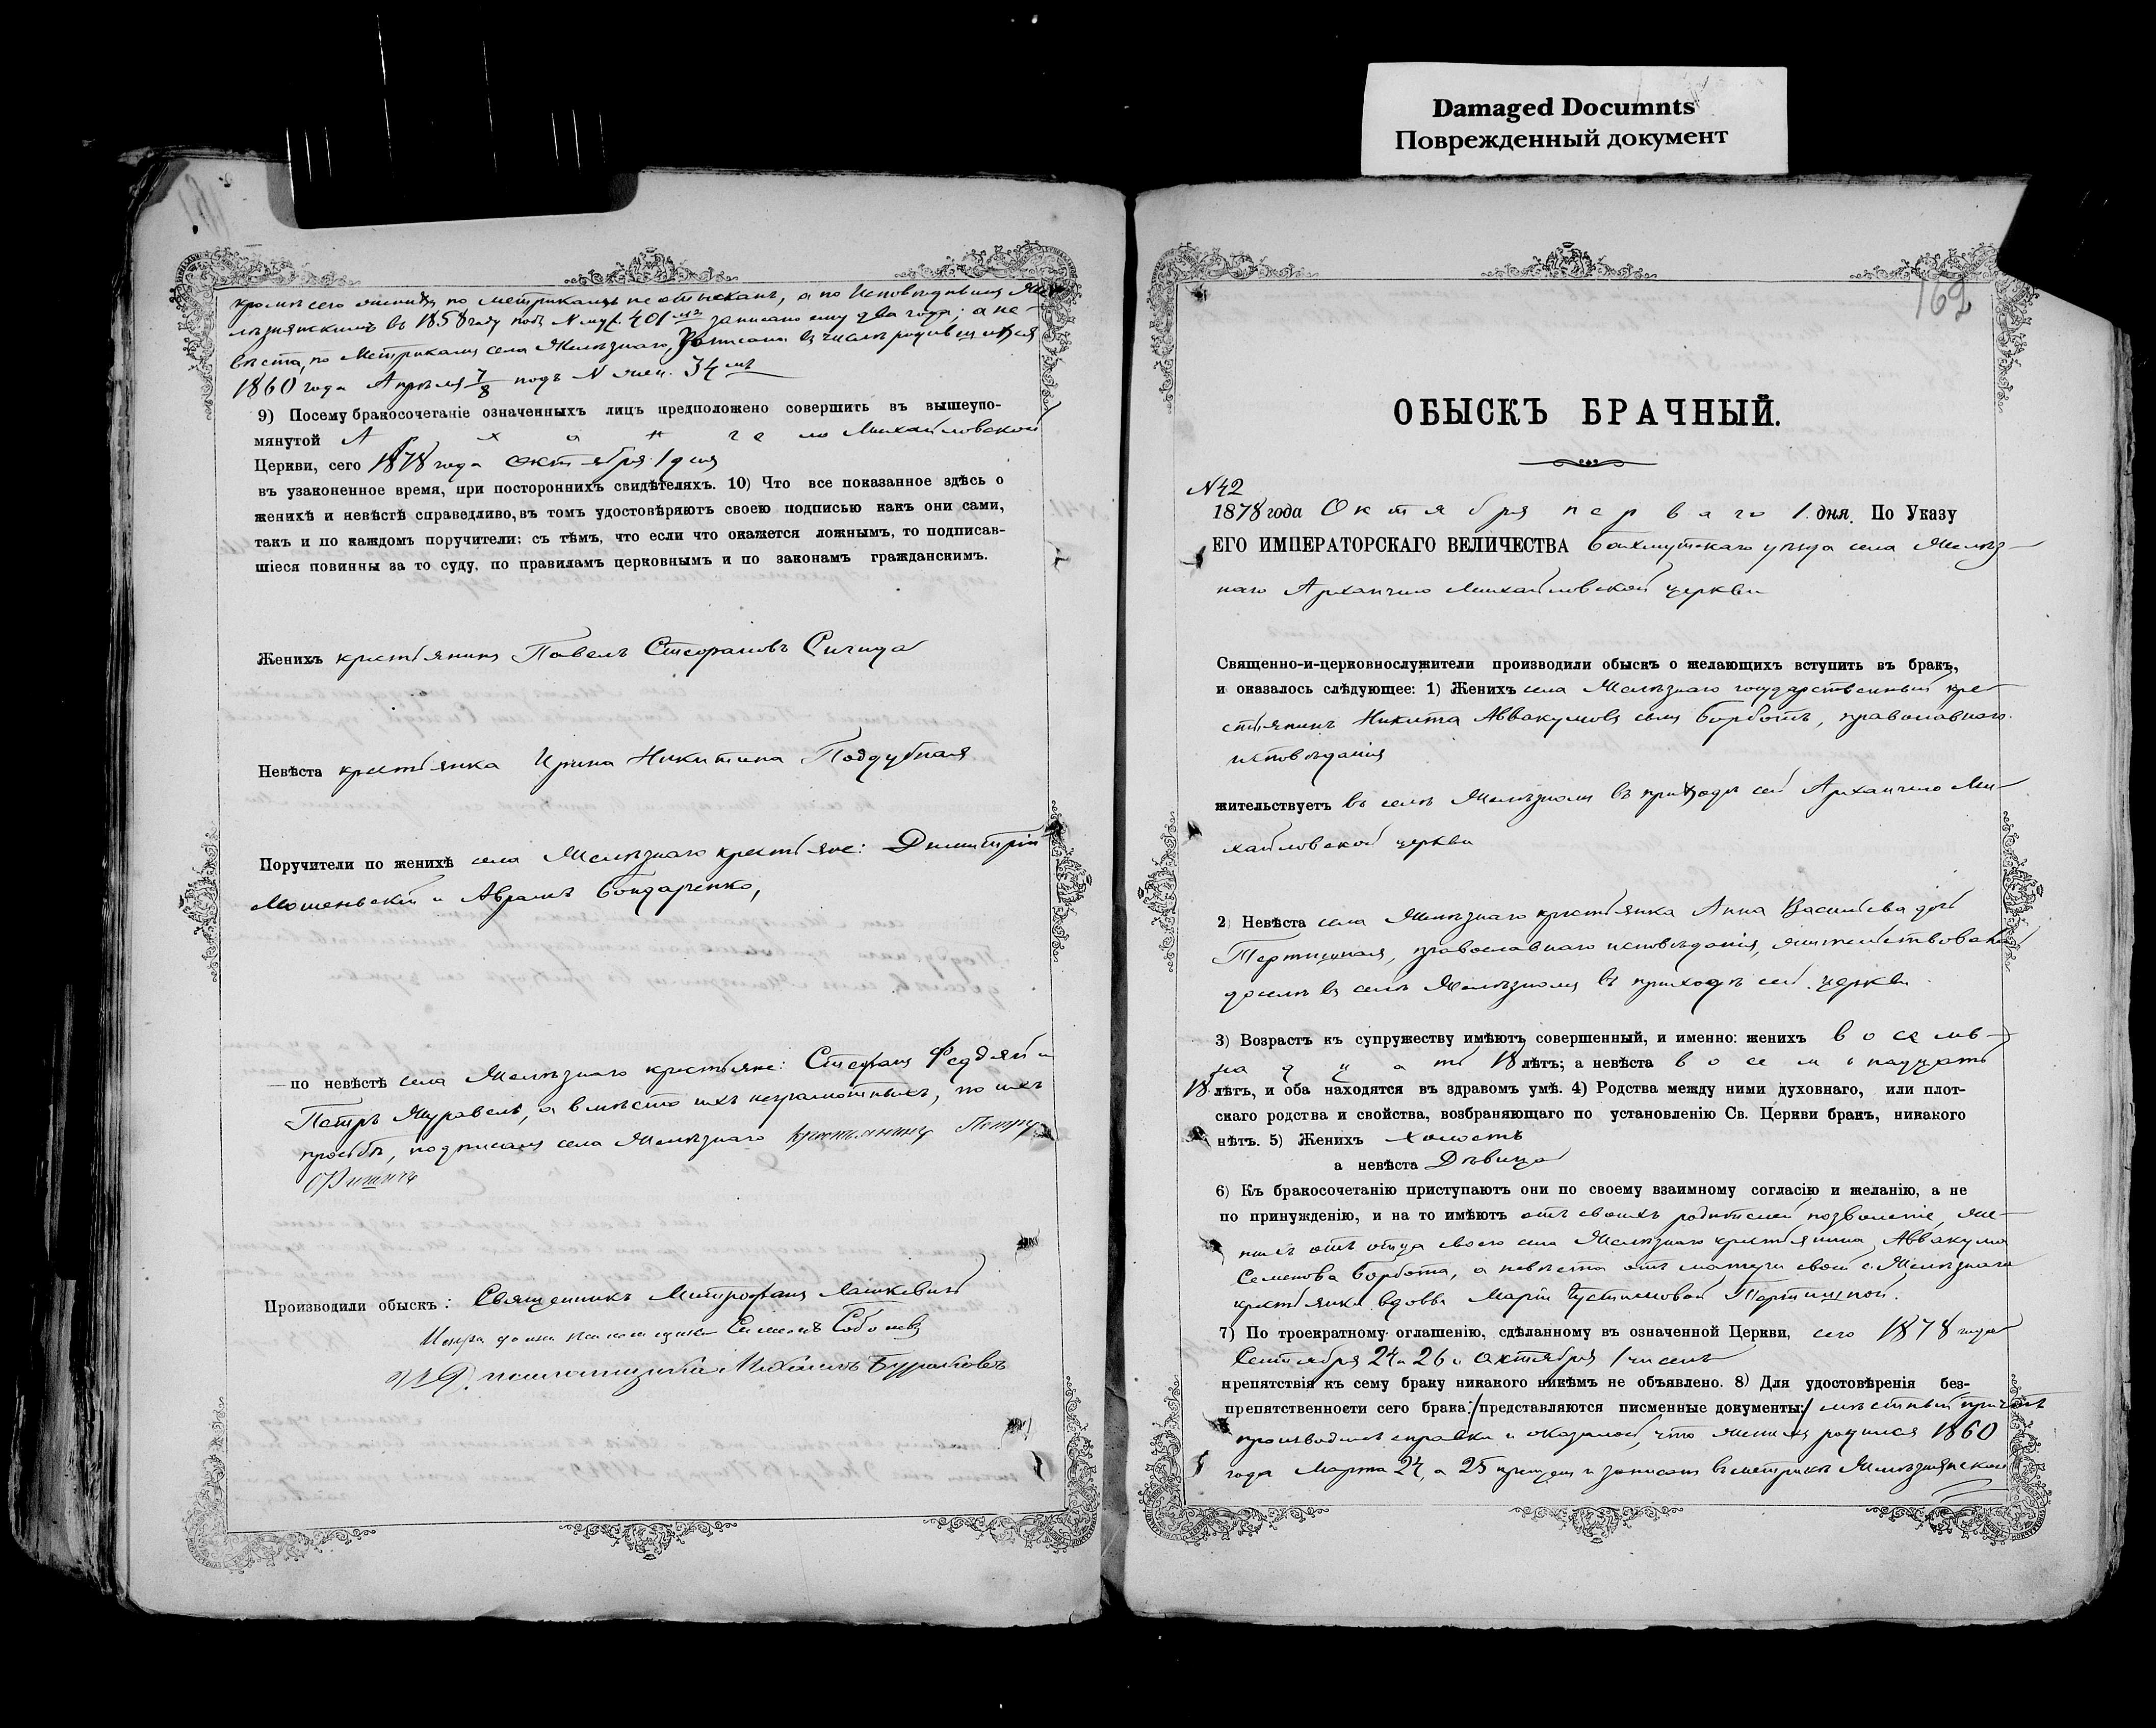 Damaged Documnts
Поврежденный документ
кромѣ сего жениха по метрикамъ не отысканъ, а по Исповѣднымъ Же-
лѣзнянскимъ въ 1858 году подъ N муж. 401мъ записано ему два года; а не-
вѣста, по Метрикамъ села Желѣзнаго, записана въ числѣ родившихся
1860 года Апрѣля 7/8 подъ N жен. 34мъ
9) Посему бракосочетаніе означенныхъ лицъ предположено совершить въ вышеупо-
мянутой Архангело Михайловской
Церкви, сего 1878 года октября 1 дня
въ узаконенное время, при постороннихъ свидѣтеляхъ. 10) Что все показанное здѣсь о
женихѣ и невѣстѣ справедливо, въ томъ удостовѣряютъ своею подписью какъ они сами,
такъ и по каждомъ поручители: съ тѣмъ, что если что окажется ложнымъ, то подписав-
шіеся повинны за то суду, по правиламъ церковнымъ и по законамъ гражданскимъ.
Женихъ крестьянинъ Павелъ Стефановъ Сигида
Невѣста крестьянка Ирина Никитина Поддубная
Поручители по женихѣ села Желѣзнаго крестьяне: Димитрій
и Аврамъ Бондаренко,
— по невѣстѣ села Желѣзнаго крестьяне: Стефанъ Феддяй и
Петръ Журавель, а вмѣсто ихъ неграмотныхъ, по ихъ
просьбѣ, подписался села Желѣзнаго крестьянинъ Петръ
Производили обыскъ: Священникъ Митрофанъ Лашкевичъ
псаломщика Симеонъ Соболевъ
И. д. псаломщика Михаилъ Бураковъ
162
ОБЫСКЪ БРАЧНЫЙ.
N42
1878 года Октября перваго 1. дня. По Указу
ЕГО ИМПЕРАТОРСКАГО ВЕЛИЧЕСТВА Бахмутскаго уѣзда села Желѣз-
наго Архангело Михайловской церкви
Священно-и-церковнослужители производили обыскъ о желающихъ вступить въ бракъ,
и оказалось слѣдующее: 1) Женихъ села Желѣзнаго государственный кре-
стьянинъ Никита Аввакумовъ сынъ Борботъ, православнаго
исповѣданія
жительствуетъ въ селѣ Желѣзномъ въ приходѣ сей Архангело Ми-
хайловской церкви
2) Невѣста села Желѣзнаго крестьянка Анна Васильева дочь
Тертишная, православнаго исповѣданія, жительствовала
доселѣ въ селѣ Желѣзномъ въ приходѣ сей церкви
3) Возрастъ къ супружеству имѣютъ совершенный, и именно: женихъ восемь-
надцать 18 лѣтъ; а невѣста восемьнадцать
18 лѣтъ, и оба находятся въ здравомъ умѣ. 4) Родства между ними духовнаго, или плот-
скаго родства и свойства, возбраняющаго по установленію Св. Церкви бракъ, никакого
нѣтъ. 5) Женихъ холостъ
а невѣста Дѣвица
6) Къ бракосочетанію приступаютъ они по своему взаимному согласію и желанію, а не
по принужденію, и на то имѣютъ отъ своихъ родителей позволеніе, же-
нихъ отъ отца своего села Желѣзнаго крестьянина Аввакума
Семенова Борбота, а невѣста отъ матери своей с. Желѣзнаго
крестьянки вдовы Маріи Устимовой Тертишной.
7) По троекратному оглашенію, сдѣланному въ означенной Церкви, сего 1878 года
Сентября 24 и 26 и октября 1 чиселъ
препятствія къ сему браку никакого никѣмъ не объявлено. 8) Для удостовѣренія без-
препятственности сего брака:/представляются писменные документы:/ мѣстный причтъ
производилъ справки и оказалось, что женихъ родился 1860
года Марта 24, а 25 крещен и записан въ метрикѣ Желѣзнянской